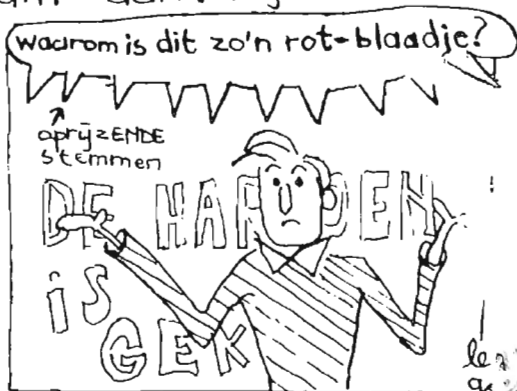 waarom is dit zo'n rot-blaadje?
oprijzENDE
stemmen
DE HARDEN
is
GEK